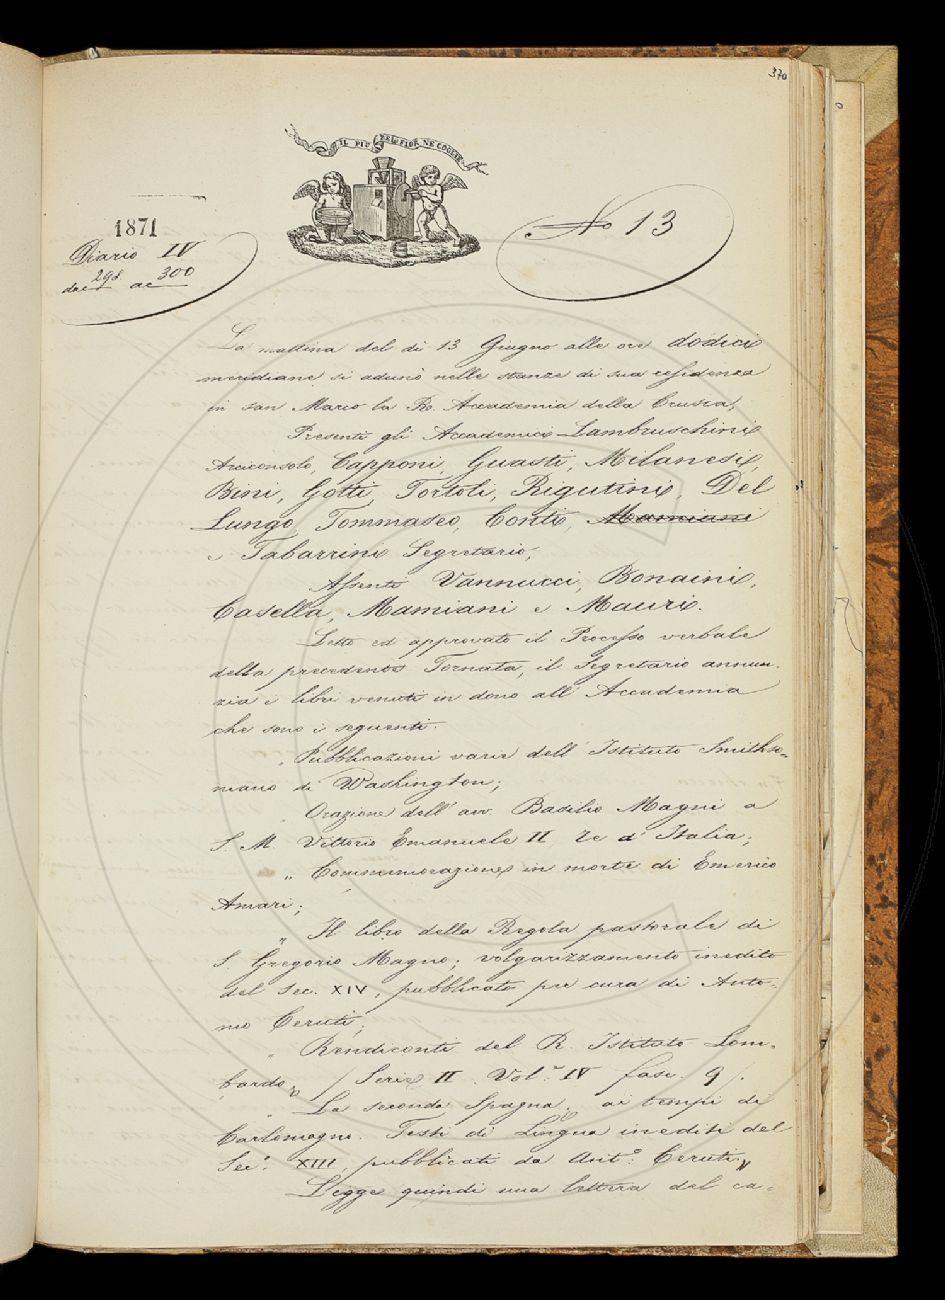 370
IL PIÙ BEL FIOR NE COGLIE
1871
Diario IV
298 ac 300
No 13
La mattina del dì 13 Giugno alle ore dodici
meridiane si adunò nelle stanze di sua residenza
in San Marco la R. Accademia della Crusca,
Presenti gli Accademici Lambruschini
Arciconsolo, Capponi, Guasti, Milanesi,
Bini, Gotti, Tortoli, Rigutini, Del
Lungo, Tommaseo, Conti, Mamiani
e Tabarrini Segretario,
Assenti Vannucci, Bonaini,
Casella, Mamiani e Mauri.
Letto ed approvato il Processo verbale
della precedente Tornata, il Segretario annun-
zia i libri venuti in dono all'Accademia
che sono i seguenti.
„ Pubblicazioni varie dell'Istituto Smithso-
niano di Washington;
„ Orazione dell'avv. Basilio Magni a
S. M Vittorio Emanuele II re d'Italia;
„ Commemorazione in morte di Emerico
Amari;
„ Il libro della Regola pastorale di
S. Gregorio Magno; volgarizzamento inedito
del Sec. XIV, pubblicato per cura di Anto-
nio Ceruti;
„ Rendiconti del R. Istituto Lom-
bardo, / Serie II. Vol. IV fasc. 9/.
„ La seconda Spagna, ai tempi di
Carlomagno. Testi di Lingua inediti del
Sec. XIII, pubblicati da Ant.o Ceruti,
Legge quindi una lettera del ca-